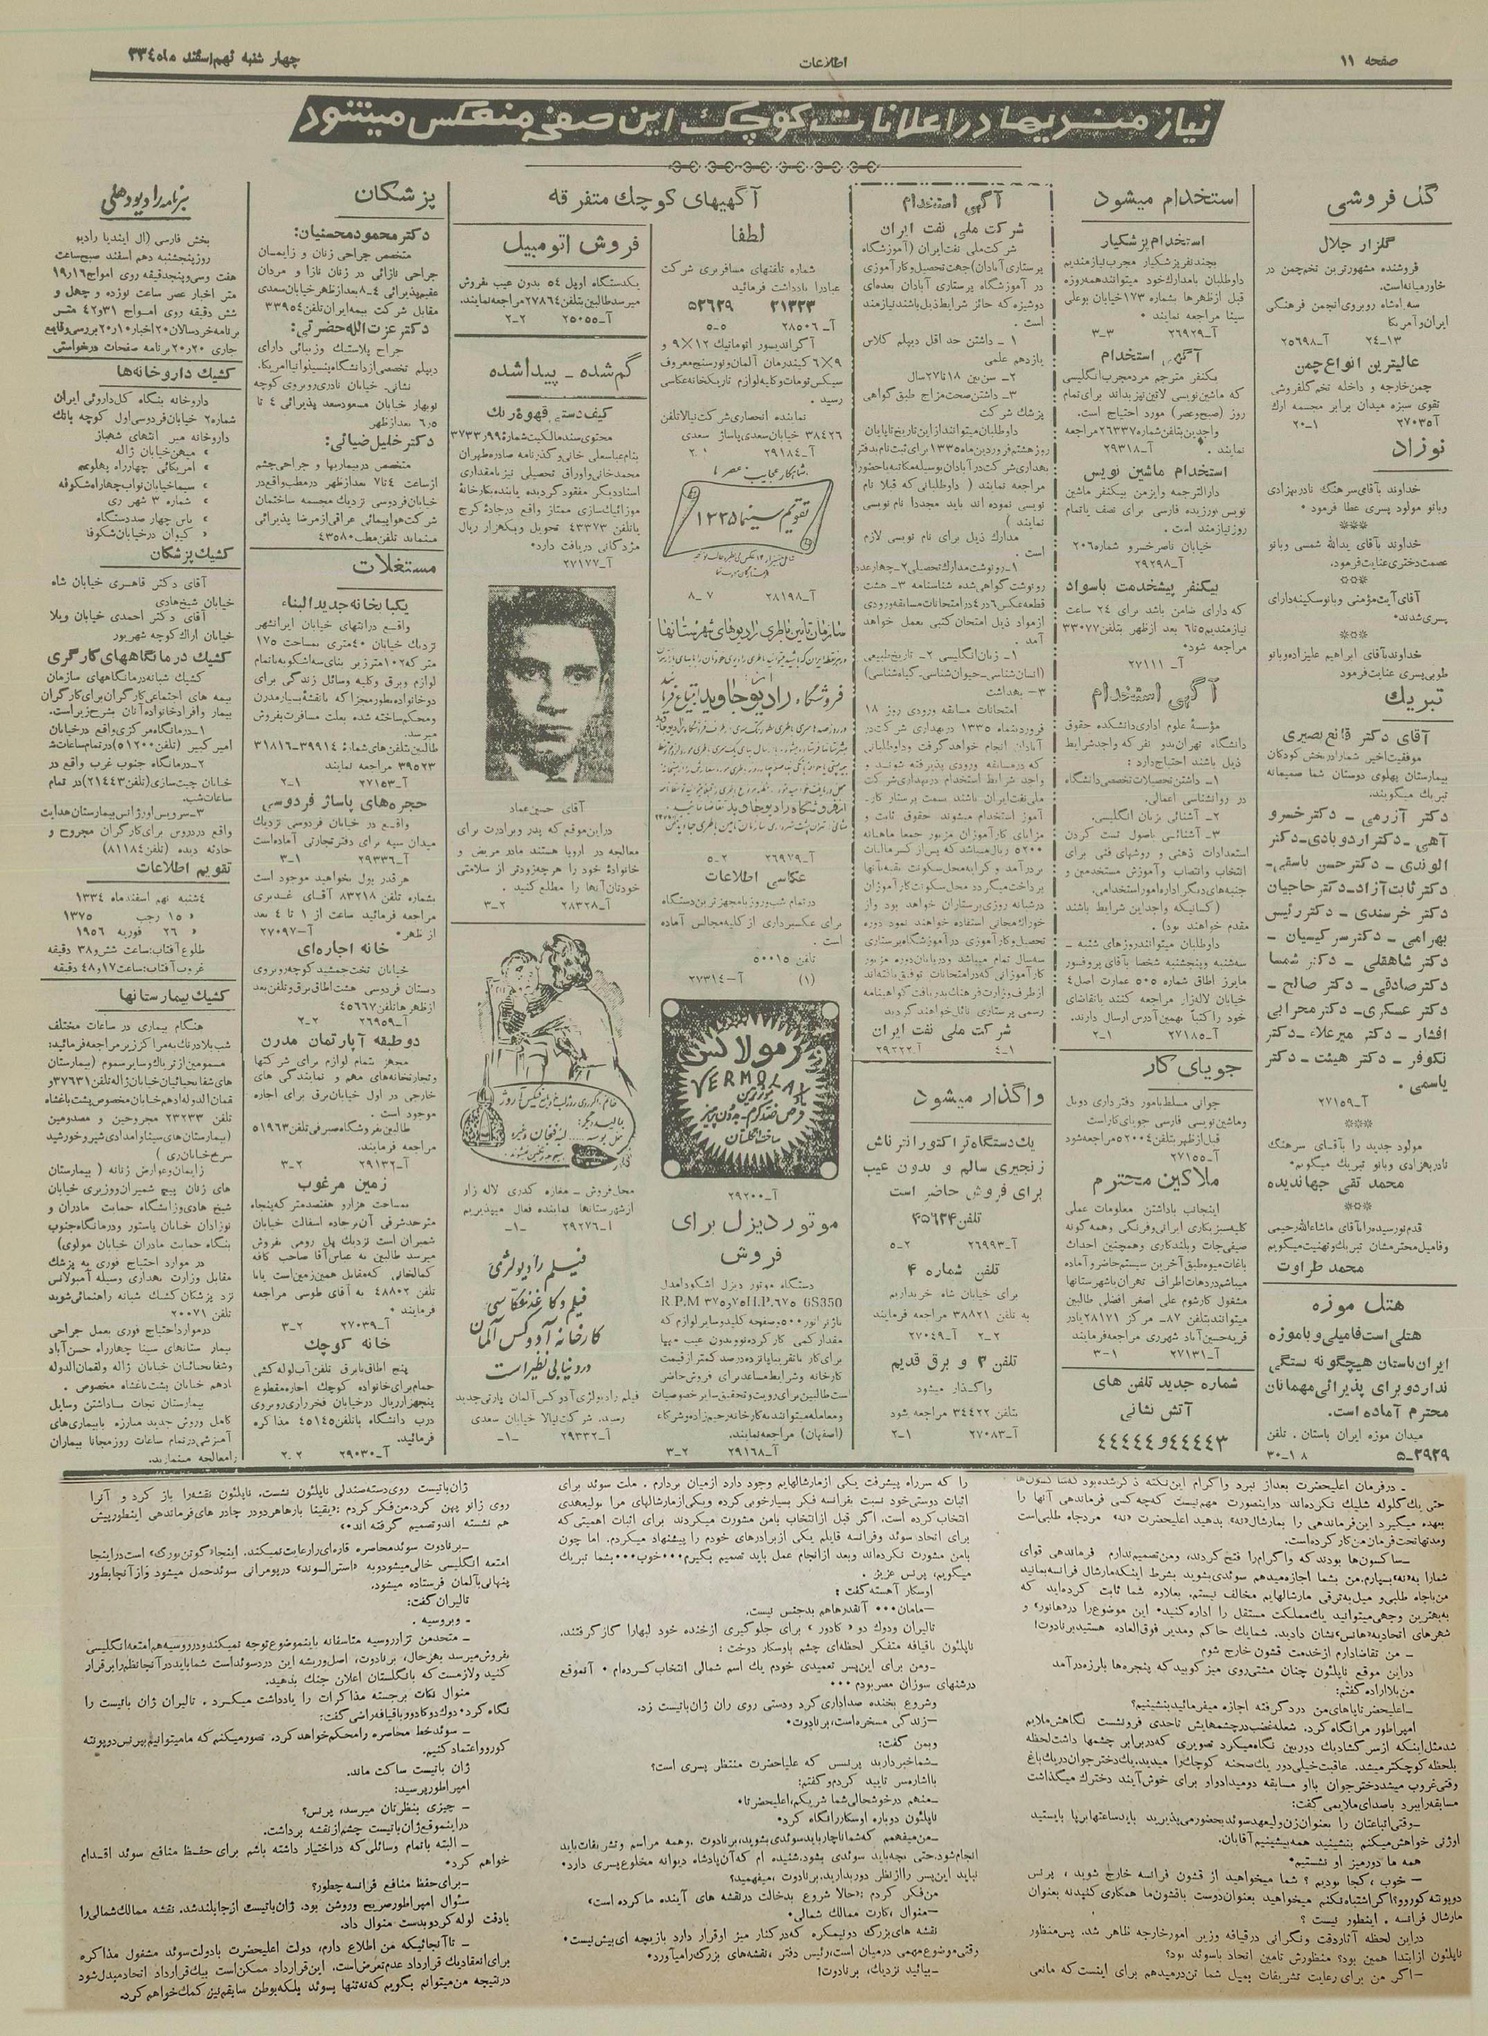 صفحه ۱۱
اطلاعات
چهار شنبه نهم اسفند ماه ۳۳۴
نیازمندیها در اعلانات کوچک این صفحه منعکس میشود
گل فروشی
گلزار جلال
فروشنده مشهورترین تخم چمن در
خاورمیانه است.
سه راه شاه روبروی انجمن فرهنگی
ایران و آمریکا
۱۳–۲۴ آ–۲۵۶۹۸
عالیترین انواع چمن
چمن خارجه و داخله تخم گلفروشی
تقوی سبزه میدان برابر مجسمه ارك
آ–۲۷۰۳۵ ۱–۲۰
نوزاد
خداوند بآقای سرهنگ نادر بهزادی
وبانو مولود پسری عطا فرمود •
خداوند بآقای یدالله شمسی وبانو
عصمت دختری عنایت فرمود.
آقای آیت مؤمنی وبانو سکینه دارای
پسری شدند•
خداوند بآقای ابراهیم علیزاده وبانو
طوبی پسری عنایت فرمود
تبریك
آقای دکتر قانع نصیری
موفقیت اخیر شما را در بخش کودکان
بیمارستان پهلوی دوستان شما صمیمانه
تبریك میگویند.
دکتر آزرمی – دکتر خسرو
آهی – دکتر اردوبادی – دکتر
الوندی – دکتر حسن یاسقی–
دکتر ثابت آزاد–دکتر حاجیان
دکتر خرسندی – دکتر رئیس
بهرامی – دکتر سرکیسیان –
دکتر شاهقلی – دکتر شمسا
دکتر صادقی – دکتر صالح –
دکتر عسکری– دکتر محرابی
افشار – دکتر میرعلاء – دکتر
نکوفر – دکتر هیئت – دکتر
یاسمی .
آ–۲۷۱۵۹
مولود جدید را بآقای سرهنگ
نادر بهزادی وبانو تبریك میگویم•
محمد تقی جهاندیده
قدم نورسیده را بآقای ماشاءالله رحیمی
و فامیل محترمشان تبریك و تهنیت میگویم
محمد طراوت
هتل موزه
هتلی است فامیلی و با موزه
ایران باستان هیچگونه بستگی
ندارد و برای پذیرائی مهمانان
محترم آماده است.
میدان موزه ایران باستان . تلفن
۵–۲۹۲۹ ۱۰۸–۳۰
استخدام میشود
استخدام پزشکیار
بچند نفر پزشکیار مجرب نیازمندیم
داوطلبان با مدارك خود میتوانند همه روزه
قبل از ظهرها بشماره ۱۷۳ خیابان بوعلی
سینا مراجعه نمایند •
آ–۲۶۹۲۹ ۳–۳
آگهی استخدام
یکنفر مترجم مرد مجرب انگلیسی
که ماشین نویسی لاتین نیز بداند برای تمام
روز (صبح و عصر) مورد احتیاج است.
واجدین بتلفن شماره ۲۶۳۳۷ مراجعه
نمایند . آ–۲۹۳۱۸
استخدام ماشین نویس
دارالترجمه وایزمن بیکنفر ماشین
نویس ورزیده فارسی برای نصف یا تمام
روز نیازمند است .
خیابان ناصرخسرو شماره ۲۰۶
آ–۲۹۲۹۸
بیکنفر پیشخدمت باسواد
که دارای ضامن باشد برای ۲۴ ساعت
نیازمندیم ۵ تا ۶ بعد از ظهر بتلفن ۳۳۰۷۷
مراجعه شود•
آ– ۲۷۱۱۱
آگهی استخدام
مؤسسهٔ علوم اداری دانشکده حقوق
دانشگاه تهران بدو نفر که واجد شرایط
ذیل باشند احتیاج دارد:
۱– داشتن تحصیلات تخصصی دانشگاه
در روانشناسی اعمالی.
۲– آشنائی بزبان انگلیسی.
۳– آشنائی باصول تست کردن
استعدادات ذهنی و روشهای فنی برای
انتخاب و انتصاب و آموزش مستخدمین و
جنبه های دیگر اداره امور استخدامی.
(کسانیکه واجد این شرایط باشند
مقدم خواهند بود).
داوطلبان میتوانند روزهای شنبه –
سه شنبه و پنجشنبه شخصا بآقای پروفسور
مایرز اطاق شماره ۵۰۵ عمارت اصل ۴
خیابان لاله زار مراجعه کنند یا تقاضای
خود را کتباً بهمین آدرس ارسال دارند.
آ–۲۷۱۸۵ ۱–۲
جویای کار
جوانی مسلط بامور دفترداری دوبل
و ماشین نویسی فارسی جویای کار است
قبل از ظهر بتلفن ۵۲۰۰۴ مراجعه شود
آ–۲۷۱۵۵
ملاکین محترم
اینجانب با داشتن معلومات عملی
کلیه سبزیکاری ایرانی و فرنگی و همه گونه
صیفی جات و بلندکاری و همچنین احداث
باغات میوه طبق آخرین سیستم حاضر و آماده
میباشم در دهات اطراف تهران یا شهرستانها
مشغول کار شوم علی اصغر افضلی طالبین
میتوانند بتلفن ۸۷– مرکز ۲۸۱۷۱ یادر
قریه حسین آباد شهر ری مراجعه فرمایند
آ–۲۷۱۳۱ ۱–۳
شماره جدید تلفن های
آتش نشانی
۴۴۴۴۳ و ۴۴۴۴۴
آگهی استخدام
شرکت ملی نفت ایران
شرکت ملی نفت ایران (آموزشگاه
پرستاری آبادان) جهت تحصیل و کارآموزی
در آموزشگاه پرستاری آبادان بعده‌ای
دوشیزه که حائز شرایط ذیل باشند نیازمند
است .
۱ – داشتن حد اقل دیپلم کلاس
یازدهم علمی
۲– سن بین ۱۸ تا ۲۷ سال
۳– داشتن صحت مزاج طبق گواهی
پزشك شرکت
داوطلبان میتوانند از این تاریخ تا پایان
روز هشتم فروردین ماه ۱۳۳۵ برای ثبت نام بدفتر
بهداری شرکت در آبادان بوسیله مکاتبه یا حضور
مراجعه نمایند ( داوطلبانی که قبلا نام
نویسی نموده اند باید مجددا نام نویسی
نمایند )
مدارك ذیل برای نام نویسی لازم
است .
۱–رونوشت مدارك تحصیلی ۲–چهار عدد
رونوشت گواهی شده شناسنامه ۳– هشت
قطعه عکس ۶ در ۴ در امتحانات مسابقه ورودی
از مواد ذیل امتحان کتبی بعمل خواهد
آمد .
۱– زبان انگلیسی ۲– تاریخ طبیعی
(انسان شناسی – حیوان شناسی – گیاه شناسی)
۳– بهداشت
امتحانات مسابقه ورودی روز ۱۸
فروردینماه ۱۳۳۵ در بهداری شرکت در
آبادان انجام خواهد گرفت و داوطلبانی
که در مسابقه ورودی پذیرفته شوند .
واجد شرایط استخدام در بهداری شرکت
ملی نفت ایران باشند سمت پرستار کار–
آموز استخدام میشوند حقوق ثابت و
مزایای کارآموزان مزبور جمعا ماهیانه
۵۲۰۰ ریال میباشد که پس از کسر مالیات
بر درآمد و کرایه محل سکونت بقیه بآنها
پرداخت میگردد محل سکونت کارآموزان
در شبانه روزی پرستاران خواهد بود و از
خوراك مجانی استفاده خواهند نمود دوره
تحصیل و کارآموزی در آموزشگاه پرستاری
سه سال تمام میباشد و در پایان دوره مزبور
کارآموزانی که در امتحانات توفیق یافته اند
از طرف وزارت فرهنگ بدریافت گواهینامه
رسمی پرستاری نائل خواهند گردید
شرکت ملی نفت ایران
۱–۴ آ–۲۹۲۲۲
واگذار میشود
یك دستگاه تراکتور انترناش
زنجیری سالم و بدون عیب
برای فروش حاضر است
تلفن ۴۵۶۲۴
آ–۲۶۹۹۳ ۲–۵
تلفن شماره ۴
برای خیابان شاه خریداریم
به تلفن ۳۸۸۲۱ مراجعه فرمایند
۲–۲ آ–۲۷۰۴۹
تلفن ۳ و برق قدیم
واگذار میشود
بتلفن ۳۴۴۲۲ مراجعه شود
آ–۲۷۰۸۳ ۱–۲
آگهیهای کوچك متفرقه
لطفا
شماره تلفنهای مسافربری شرکت
عبادرا یادداشت فرمائید
۲۱۳۲۳ ۵۲۶۲۹
آ–۲۸۵۰۶ ۵–۵
آگراندیسور اتوماتیك ۱۲×۹ و
۹×۶ کیندرمان آلمان و نورسنج معروف
سیکس تومات و کلیه لوازم تاریکخانه عکاسی
رسید .
نماینده انحصاری شرکت نیالا تلفن
۳۸۴۲۶ خیابان سعدی پاساژ سعدی
آ–۲۹۱۸۴ ۲۰۱
شاهکار عجایب عصر ما
تقویم سینما ۱۳۳۵
آ–۲۸۱۹۸ ۷–۸
سازمان تامین باطری رادیوهای شهرستانها
فروشگاه رادیو جاوید ابتیاع فرمائید
آ–۲۶۹۷۹ ۲–۵
عکاسی اطلاعات
در تمام شب و روز با مجهزترین دستگاه
برای عکسبرداری از کلیه مجالس آماده
است .
تلفن ۵۰۰۱۵
آ–۲۷۳۱۴ (۱)
رمولاکس
VERMOLAX
قرص ضد کرم– بدون پرهیز
ساخت انگلستان
آ–۲۹۲۰۰
موتور دیزل برای
فروش
دستگاه موتور دیزل اشکودا مدل
6S350 ۶۷۵ H.P. ۳۷۵ R.P.M
فروش اتومبیل
یکدستگاه اوپل ۵۴ بدون عیب بفروش
میرسد طالبین بتلفن ۲۷۸۶۴ مراجعه نمایند.
آ–۲۵۰۵۵ ۲–۲
گم شده – پیدا شده
کیف دستی قهوه‌ رنك
محتوی سند مالکیت شماره ۳۷۳۳٫۹۹
بنام عباسعلی خانی و گذرنامه صادره طهران
محمد خانی و اوراق تحصیلی نیز بامقداری
اسناد دیگر مفقود گردیده یابنده بکارخانهٔ
موزائیك سازی ممتاز واقع در جادهٔ کرج
با تلفن ۴۳۳۷۳ تحویل و یکهزار ریال
مژدگانی دریافت دارد•
آ–۲۷۱۷۷
آقای حسین عماد
در این موقع که پدر و برادرت برای
معالجه در اروپا هستند مادر مریض و
خانوادهٔ خود را هر چه زودتر از سلامتی
خودتان آنها را مطلع کنید .
آ–۲۸۳۲۸ ۲–۳
محل فروش – مغازه کدری لاله زار
از شهرستانها نماینده فعال میپذیریم
آ–۲۹۲۷۶ –۱–
فیلم رادیولژی
فیلم و کاغذ عکاسی
کارخانه آدوکس آلمان
در دنیا بی نظیر است
فیلم رادیولژی آدوکس آلمان پارتی جدید
رسید. شرکت نیالا خیابان سعدی
آ–۲۹۳۳۲ –۱–
پزشکان
دکتر محمود محسنیان:
متخصص جراحی زنان و زایمان
جراحی نازائی در زنان نازا و مردان
عقیم پذیرائی ۴–۸ بعد از ظهر خیابان سعدی
مقابل شرکت بیمه ایران تلفن ۳۳۹۵۴
دکتر عزت الله حضرتی:
جراح پلاستیك و زیبائی دارای
دیپلم تخصصی از دانشگاه پنسیلوانیا آمریکا.
نشانی. خیابان نادری روبروی کوچه
نوبهار خیابان مسعود سعد پذیرائی ۴ تا
۶٫۵ بعد از ظهر
دکتر خلیل ضیائی:
متخصص در بیماریها و جراحی چشم
از ساعت ۴ تا ۷ بعد از ظهر در مطب واقع در
خیابان فردوسی نزدیك مجسمه ساختمان
شرکت هواپیمائی عراقی از مرضا پذیرائی
مینماید تلفن مطب ۴۳۵۸۰
مستغلات
یکبابخانه جدید البناء
واقع در انتهای خیابان ایرانشهر
نزدیك خیابان ۴۰ متری بمساحت ۱۷۵
متر که ۱۰۲ متر زیر بنای سه اشکوبه با تمام
لوازم و برق و کلیه وسائل زندگی برای
دو خانواده بطور مجزا که با نقشهٔ بسیار مدرن
و محکم ساخته شده بعلت مسافرت بفروش
میرسد.
طالبین تلفن های شمارهٔ ۳۹۹۱۴–۳۱۸۱۶
۳۹۵۲۳ مراجعه نمایند
آ–۲۷۱۵۳ ۱–۲
حجره‌های پاساژ فردوسی
واقع در خیابان فردوسی نزدیك
میدان سپه برای دفتر تجارتی آماده است
آ–۲۹۳۳۶ ۱–۳
هر قدر پول بخواهید موجود است
بشماره تلفن ۸۳۲۱۸ آقای غدیری
مراجعه فرمائید ساعت از ۱ تا ۴ بعد
از ظهر• آ–۲۷۰۹۷
خانه اجاره‌ای
خیابان تخت جمشید کوچه روبروی
دبستان فردوسی هشت اطاق برق و تلفن بعد
از ظهرها تلفن ۴۵۶۶۷
آ–۲۶۹۵۹ ۲–۲
دو طبقه آپارتمان مدرن
مجهز بتمام لوازم برای شرکتها
و تجارتخانه‌های مهم و نمایندگی های
خارجی در اول خیابان برق برای اجاره
موجود است .
طالبین بفروشگاه مصرفی تلفن ۵۱۹۶۳
مراجعه فرمایند.
آ–۲۹۱۳۲ ۲–۳
زمین مرغوب
بمساحت هزار و هفتصد متر که پنجاه
متر حد شرقی آن بر جاده اسفالت خیابان
شمیران است نزدیك پل رومی بفروش
میرسد طالبین به عباس آقا صاحب کافه
کمالخانی که مقابل همین زمین است یا با
تلفن ۴۸۸۰۲ به آقای طوسی مراجعه
فرمایند •
آ–۲۷۰۳۹ ۲–۳
خانه کوچك
پنج اطاق با برق تلفن آب لوله کشی
حمام برای خانواده کوچك اجاره مقطوع
پنجهزار ریال در خیابان فخر رازی روبروی
درب دانشگاه با تلفن ۴۵۱۴۵ مذاکره
فرمائید.
آ–۲۹۰۳۰ ۲–۲
برنامه رادیو دهلی
بخش فارسی (ال ایندیا رادیو
روز پنجشنبه دهم اسفند صبح ساعت
هفت و سی و پنج دقیقه روی امواج ۱۶ و ۱۹
متر اخبار عصر ساعت نوزده و چهل و
شش دقیقه روی امواج ۳۱ و ۴۲ متر
برنامه خردسالان ۲۰ اخبار ۲۰٫۱۰ بررسی وقایع
جاری ۲۰٫۲۰ برنامه صفحات درخواستی
کشیك داروخانه‌ها
داروخانه بنگاه کل داروئی ایران
شماره ۲ خیابان فردوسی اول کوچه بانك
داروخانه میر انتهای شهباز
» میهن خیابان ژاله
» آمریکائی چهارراه پهلوی
» سیما خیابان نواب چهارراه شکوفه
» شماره ۳ شهر ری
» یاس چهارصد دستگاه
» کیوان در خیابان شکوفا
کشیك پزشکان
آقای دکتر قاهری خیابان شاه
خیابان شیخ هادی
آقای دکتر احمدی خیابان ویلا
خیابان اراك کوچه شهریور
کشیك درمانگاههای کارگری
کشیك شبانه درمانگاههای سازمان
بیمه های اجتماعی کارگران برای کارگران
بیمار و افراد خانواده آنان بشرح زیر است.
۱–درمانگاه مرکزی واقع در خیابان
امیر کبیر (تلفن ۵۱۲۰۰) در تمام ساعات شب
۲–درمانگاه جنوب غرب واقع در
خیابان چیت سازی (تلفن ۲۱۴۴۳) در تمام
ساعات شب.
۳–سرویس اورژانس بیمارستان هدایت
واقع در دروس برای کارگران مجروح و
حادثه دیده (تلفن ۸۱۱۸۴)
تقویم اطلاعات
۴شنبه نهم اسفند ماه ۱۳۳۴
» ۱۵ رجب ۱۳۷۵
» ۲۶ فوریه ۱۹۵۶
طلوع آفتاب: ساعت شش و ۳۸ دقیقه
غروب آفتاب: ساعت ۱۷ و ۴۸ دقیقه
کشیك بیمارستانها
هنگام بیماری در ساعات مختلف
شب بلادرنك به مراکز زیر مراجعه فرمائید:
مسمومین از تریاك و سایر سموم (بیمارستان
های شفا یحیائیان خیابان ژاله تلفن ۳۷۶۳۱ و
لقمان الدوله ادهم خیابان مخصوص پشت باغشاه
تلفن ۲۳۲۳۳ مجروحین و مصدومین
(بیمارستان های سینا و امدادی شیر و خورشید
سرخ خیابان ری )
زایمان و عوارض زنانه ( بیمارستان
های زنان پیچ شمیران و وزیری خیابان
شیخ هادی و زایشگاه حمایت مادران و
نوزادان خیابان پاستور و درمانگاه جنوب
بنگاه حمایت مادران خیابان مولوی)
در موارد احتیاج فوری به پزشك
مقابل وزارت بهداری وسیله آمبولانس
نزد پزشکان کشیك شبانه راهنمائی شوید
تلفن ۲۰۰۷۱
در موارد احتیاج فوری بعمل جراحی
بیمارستانهای سینا چهارراه حسن آباد
و شفا یحیائیان خیابان ژاله و لقمان الدوله
ادهم خیابان پشت باغشاه مخصوص .
بیمارستان نجات با داشتن وسایل
کامل و روش جدید مبارزه با بیماری‌های
آمیزشی در تمام ساعات روز مجانا بیماران
را معالجه مینماید.
– در فرمان اعلیحضرت بعد از نبرد واگرام این نکته ذکر شده بود که ساکسون‌ها
حتی یك گلوله شلیك نکرده‌اند در اینصورت مهم نیست که چه کسی فرماندهی آنها را
بعهده میگیرد این فرماندهی را بمارشال «نه» بدهید اعلیحضرت «نه» مرد جاه طلبی است
و مدتها تحت فرمان من کار کرده است.
–ساکسون‌ها بودند که واگرام را فتح کردند، و من تصمیم ندارم فرماندهی قوای
شما را به «نه» بسپارم. من بشما اجازه میدهم سوئدی بشوید بشرط اینکه مارشال فرانسه بمانید
من با جاه طلبی و میل به ترقی مارشالهایم مخالف نیستم. بعلاوه شما ثابت کرده‌اید که
به بهترین وجهی میتوانید یك مملکت مستقل را اداره کنید• این موضوع را در «هانور» و
شهرهای اتحادیه «هانس» نشان دادید. شما یك حاکم و مدیر فوق العاده هستید برنادوت!
– من تقاضا دارم از خدمت قشون خارج شوم
در این موقع ناپلئون چنان مشتی روی میز کوبید که پنجره‌ها بلرزه درآمد
من بلا اراده گفتم:
–اعلیحضرتا پاهای من درد گرفته اجازه میفرمائید بنشینم؟
امپراطور مرا نگاه کرد. شعله غضب در چشمهایش تا حدی فرونشست نگاهش ملایم
شد مثل اینکه از سر گشاد یك دوربین نگاه میکرد تصویری که در برابر چشمها داشت لحظه
بلحظه کوچکتر میشد. عاقبت خیلی دور یك صحنه کوچك را میدید. یك دختر جوان در یك باغ
وقتی غروب میشد دختر جوان با او مسابقه دو میداد و او برای خوش آیند دخترك میگذاشت
مسابقه را ببرد با صدای ملایمی گفت:
–وقتی اتباعتان را بعنوان زن ولیعهد سوئد بحضور می‌پذیرید باید ساعتها برپا بایستید
اوژنی خواهش میکنم بنشینید همه بنشینیم آقایان.
همه ما دور میز او نشستیم•
– خوب ، کجا بودیم ؟ شما میخواهید از قشون فرانسه خارج شوید ، پرنس
دوپونته کوروو؟ اگر اشتباه نکنم میخواهید بعنوان دوست با قشون ما همکاری کنید نه بعنوان
مارشال فرانسه . اینطور نیست ؟
در این لحظه آثار دقت و نگرانی در قیافه وزیر امور خارجه ظاهر شد. پس منظور
ناپلئون از ابتدا همین بود؟ منظورش تامین اتحاد با سوئد بود؟
– اگر من برای رعایت تشریفات بمیل شما تن در میدهم برای اینست که مانعی
را که سر راه پیشرفت یکی از مارشالهایم وجود دارد از میان بردارم . ملت سوئد برای
اثبات دوستی خود نسبت بفرانسه فکر بسیار خوبی کرده و یکی از مارشالهای مرا بولیعهدی
انتخاب کرده است. اگر قبل از انتخاب با من مشورت میکردند برای اثبات اهمیتی که
برای اتحاد سوئد و فرانسه قایلم یکی از برادرهای خودم را پیشنهاد میکردم. اما چون
با من مشورت نکرده‌اند و بعد از انجام عمل باید تصمیم بگیرم•••خوب•••بشما تبریك
میگویم، پرنس عزیز .
اوسکار آهسته گفت :
–مامان••• آنقدرها هم بدجنس نیست.
تالیران و دوك دو « کادور » برای جلوگیری از خنده خود لبها را گاز گرفتند.
ناپلئون باقیافه متفکر لحظه‌ای چشم باوسکار دوخت :
–و من برای این پسر تعمیدی خودم یك اسم شمالی انتخاب کرده‌ام • آنموقع
در شنهای سوزان مصر بودم •••
و شروع بخنده صداداری کرد و دستی روی ران ژان باتیست زد.
–زندگی مسخره است، برنادوت•
و بمن گفت:
–شما خبر دارید پرنسس که علیاحضرت منتظر پسری است؟
با اشاره سر تایید کردم و گفتم:
–منهم در خوشحالی شما شریکم، اعلیحضرتا•
ناپلئون دوباره اوسکار را نگاه کرد•
–من میفهمم که شما ناچار باید سوئدی بشوید، برنادوت .و همه مراسم و تشریفات باید
انجام شود. حتی بچه باید سوئدی بشود. شنیده ام که آن پادشاه دیوانه مخلوع پسری دارد•
نباید این پسر را از نظر دور بدارید. برنادوت ،میفهمید؟
من فکر کردم :«حالا شروع بدخالت در نقشه های آینده ما کرده است»
–منوال ،کارت ممالك شمالی•
نقشه های بزرگ در نیمکره که در کنار میز او قرار دارد بازیچه ای بیش نیست•
وقتی موضوع مهمی در میان است، رئیس دفتر ،نقشه‌های بزرگ را می‌آورد•
–بیائید نزدیك، برنادوت!
ژان باتیست روی دسته صندلی ناپلئون نشست. ناپلئون نقشه را باز کرد و آنرا
روی زانو پهن کرد. من فکر کردم :«یقینا بارها هر دو در چادرهای فرماندهی اینطور پیش
هم نشسته اند و تصمیم گرفته اند•»
–برنادوت سوئد محاصره قاره‌ای را رعایت نمیکند. اینجا، «گوتن بورك» است در اینجا
امتعه انگلیسی خالی میشود و به «استرالسوند» در پومرانی سوئد حمل میشود و از آنجا بطور
پنهانی بآلمان فرستاده میشود.
تالیران گفت:
– و بروسیه .
– متحد من تزار روسیه متاسفانه باینموضوع توجه نمیکند و در روسیه هم امتعه انگلیسی
بفروش میرسد بهرحال، برنادوت، اصل و ریشه این درد سوئد است شما باید در آنجا نظم را برقرار
کنید ولازمست که بانگلستان اعلان جنك بدهید.
منوال نکات برجسته مذاکرات را یادداشت میکرد . تالیران ژان باتیست را
نگاه کرد• دوك دو کادور با قیافه راضی گفت:
– سوئد خط محاصره را محکم خواهد کرد. تصور میکنم که ما میتوانیم بپرنس دوپونته
کوروو اعتماد کنیم.
ژان باتیست ساکت ماند.
امپراطور پرسید:
– چیزی بنظرتان میرسد، پرنس؟
در اینموقع ژان باتیست چشم از نقشه برداشت.
– البته با تمام وسائلی که در اختیار داشته باشم برای حفظ منافع سوئد اقدام
خواهم کرد•
–برای حفظ منافع فرانسه چطور؟
سئوال امپراطور صریح و روشن بود. ژان باتیست از جا بلند شد. نقشه ممالك شمالی را
بادقت لوله کرد و بدست منوال داد.
– تا آنجائیکه من اطلاع دارم، دولت اعلیحضرت با دولت سوئد مشغول مذاکره
برای انعقاد یك قرارداد عدم تعرض است. این قرارداد ممکن است بیك قرارداد اتحاد مبدل شود
در نتیجه من میتوانم بگویم که نه تنها بسوئد بلکه بوطن سابقم نیز کمك خواهم کرد.